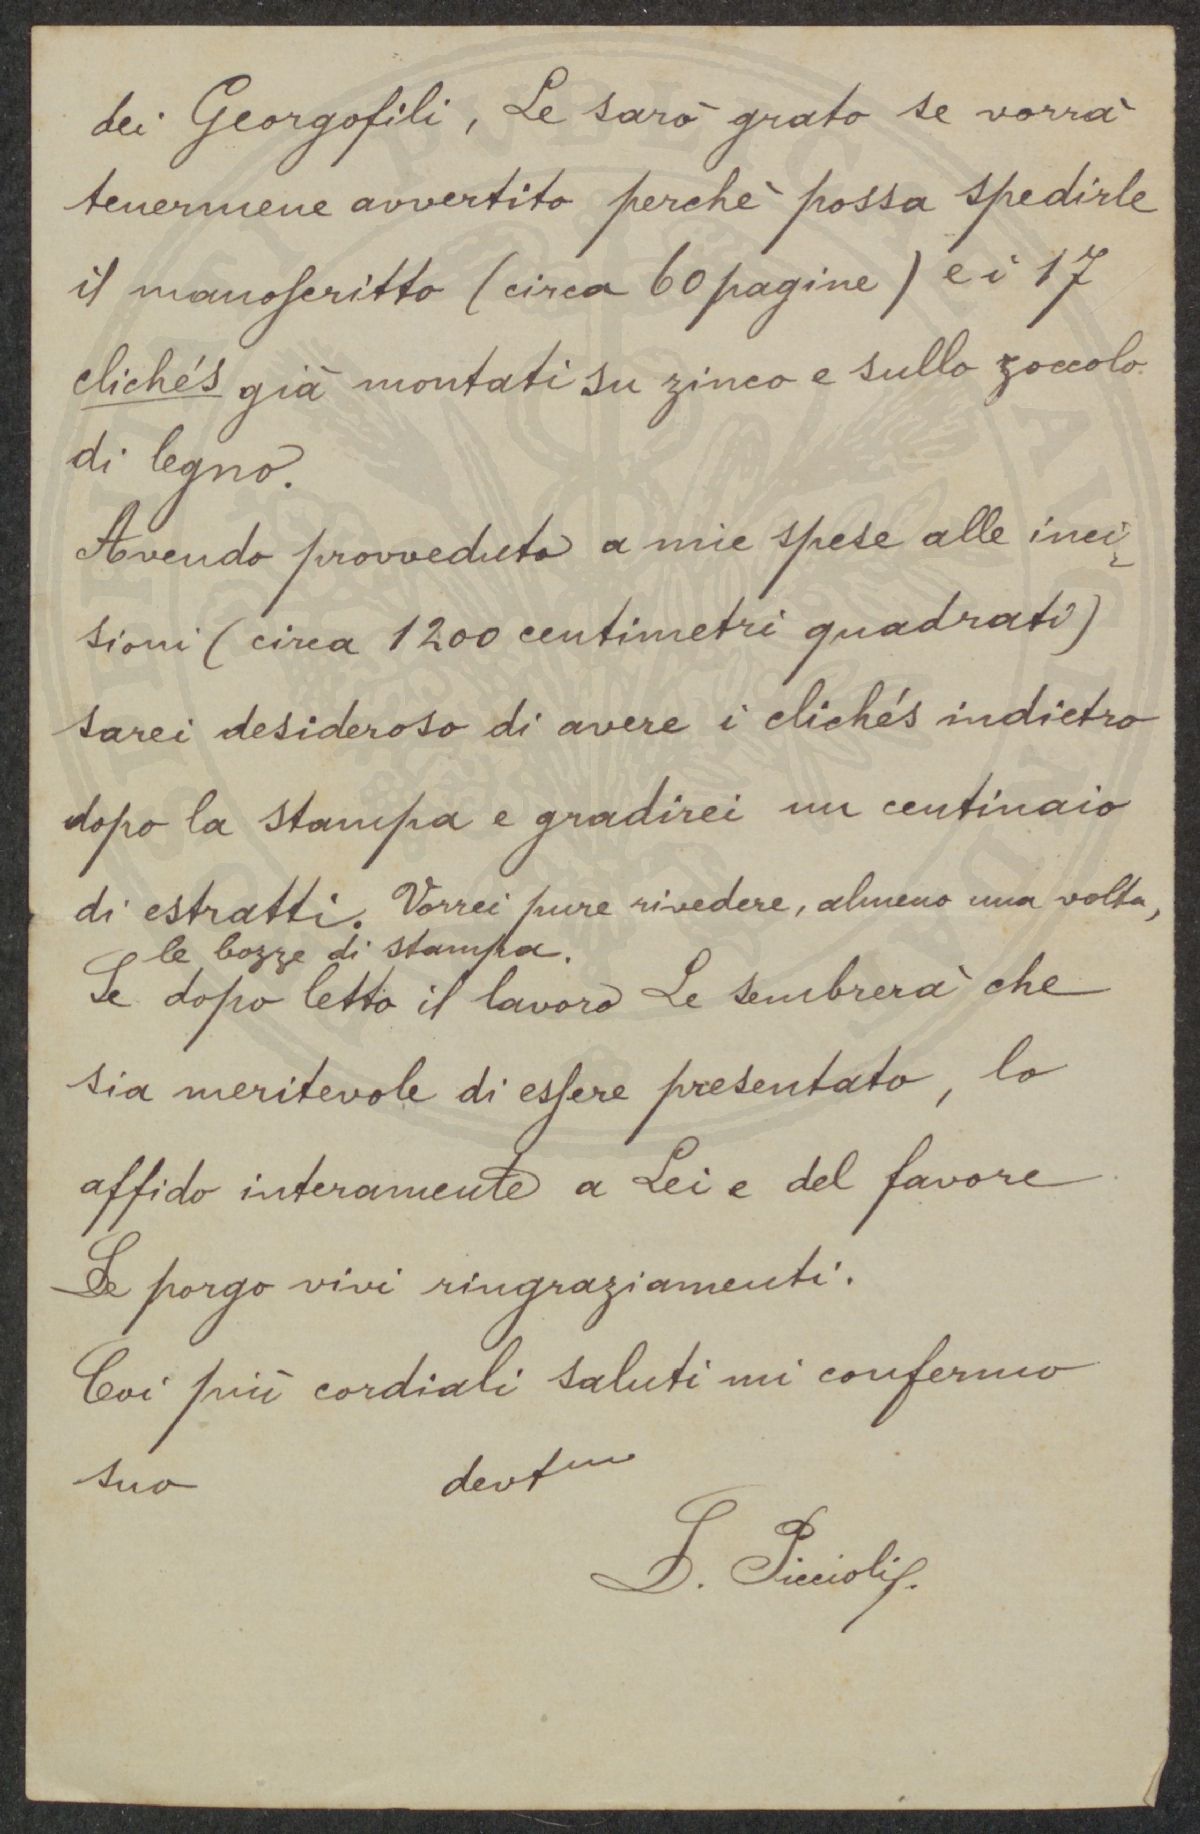 dei Georgofili, Le sarò grato se vorrà
tenermene avvertito perchè possa spedirle
il manoscritto (circa 60 pagine) e i 17
clichés già montati su zinco e sullo zoccolo
di legno.
Avendo provveduto a mie spese alle inci-
sioni (circa 1200 centimetri quadrati)
sarei desideroso di avere i clichés indietro
dopo la stampa e gradirei un centinaio
di estratti. Vorrei pure rivedere, almeno una volta,
le bozze di stampa.
Se dopo letto il lavoro Le sembrerà che
sia meritevole di essere presentato, lo
affido interamente a Lei e del favore
Le porgo vivi ringraziamenti.
Coi più cordiali saluti mi confermo
suo devtmo
L. Piccioli